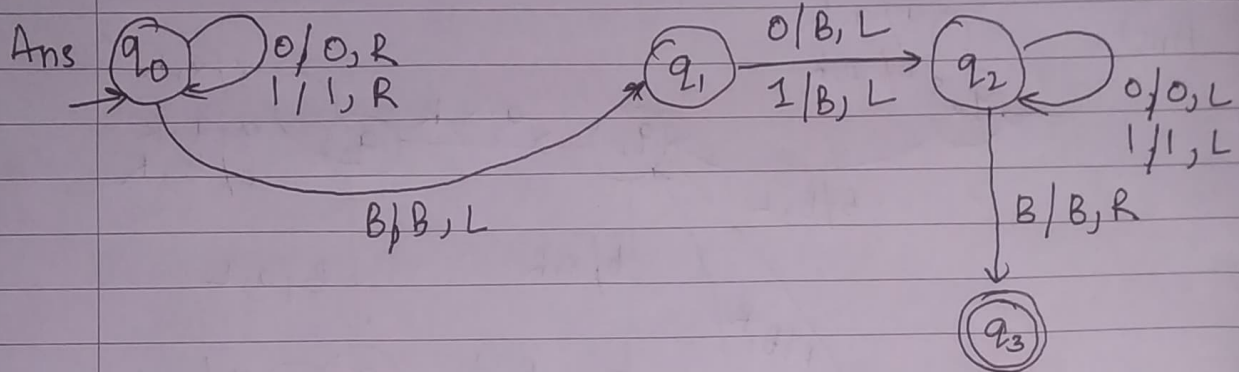 Ans
q0
0/0, R
1/1, R
B/B, L
q1
0/B, L
1/B, L
q2
0/0, L
1/1, L
B/B, R
q3